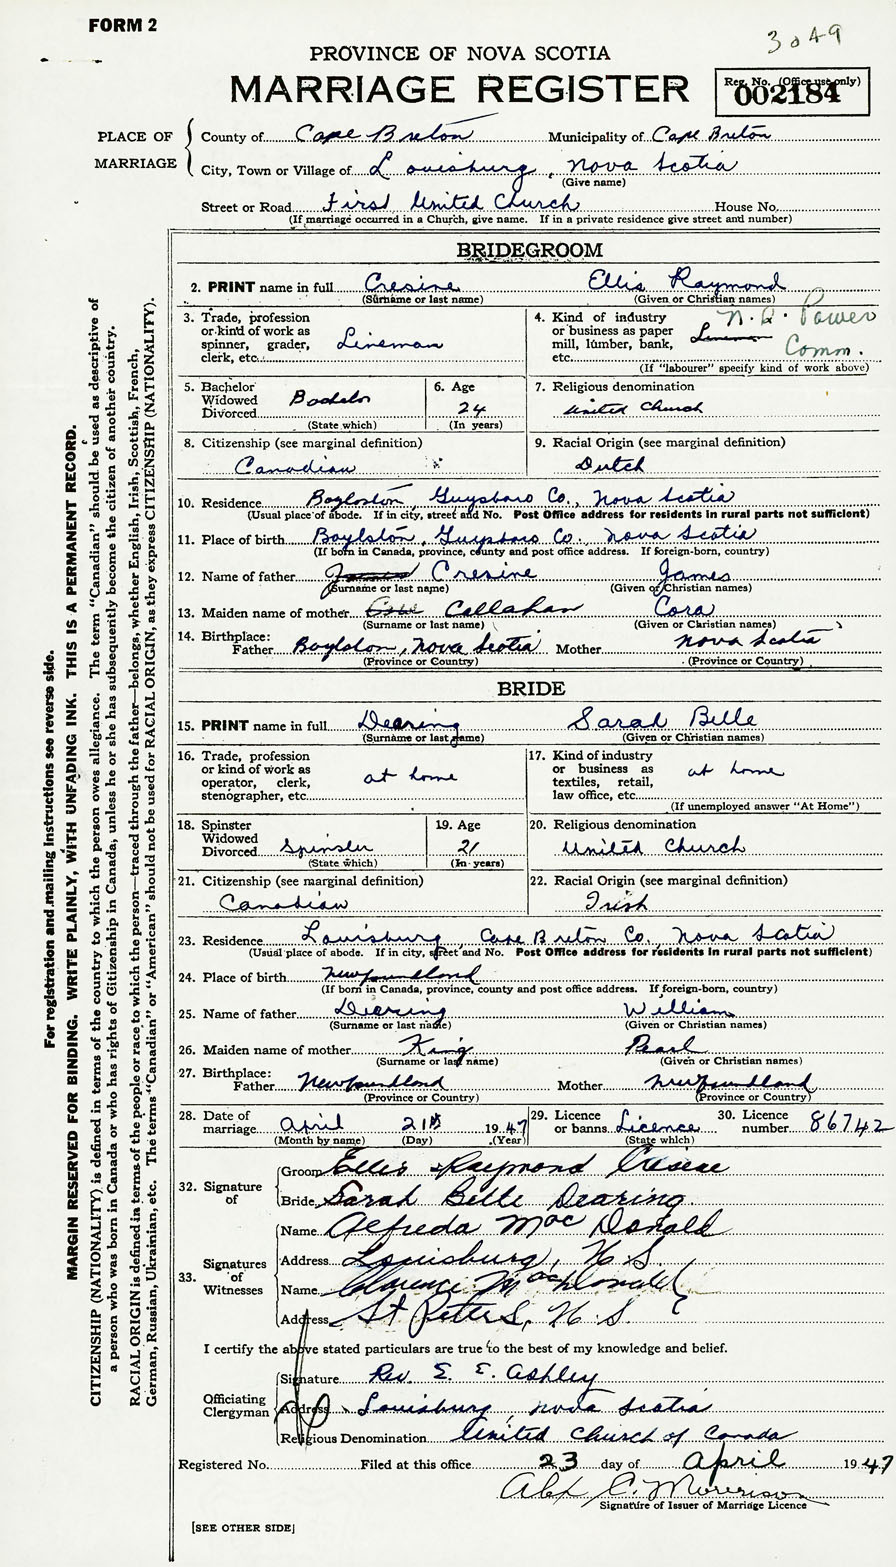 FORM 2
3049
PROVINCE OF NOVA SCOTIA
MARRIAGE REGISTER
Reg. No. (Office use only)
002184
PLACE OF MARRIAGE
County of Cape Breton Municipality of Cape Breton
City, Town or Village of Louisburg, Nova Scotia
(Give name)
Street or Road First United Church House No.
(If marriage occurred in a Church, give name. If in a private residence give street and number)
BRIDEGROOM
2. PRINT name in full Cresine Ellis Raymond
(Surname or last name) (Given or Christian names)
3. Trade, profession or kind of work as spinner, grader, clerk, etc. Lineman
4. Kind of industry or business as paper mill, lumber, bank, etc. N.S. Power Comm.
(If "labourer" specify kind of work above)
5. Bachelor Widowed Divorced Bachelor
(State which)
6. Age 24
(In years)
7. Religious denomination
United Church
8. Citizenship (see marginal definition)
Canadian
9. Racial Origin (see marginal definition)
Dutch
10. Residence Boylston, Guysboro Co., Nova Scotia
(Usual place of abode. If in city, street and No. Post Office address for residents in rural parts not sufficient)
11. Place of birth Boylston, Guysboro Co., Nova Scotia
(If born in Canada, province, county and post office address. If foreign-born, country)
12. Name of father James Cresine James
(Surname or last name) (Given or Christian names)
13. Maiden name of mother Callahan Cora
(Surname or last name) (Given or Christian names)
14. Birthplace:
Father Boylston, Nova Scotia Mother Nova Scotia
(Province or Country) (Province or Country)
BRIDE
15. PRINT name in full Dearing Sarah Belle
(Surname or last name) (Given or Christian names)
16. Trade, profession or kind of work as operator, clerk, stenographer, etc. at home
17. Kind of industry or business as textiles, retail, law office, etc. at home
(If unemployed answer "At Home")
18. Spinster Widowed Divorced Spinster
(State which)
19. Age 21
(In years)
20. Religious denomination
United Church
21. Citizenship (see marginal definition)
Canadian
22. Racial Origin (see marginal definition)
Irish
23. Residence Louisburg, Cape Breton Co., Nova Scotia
(Usual place of abode. If in city, street and No. Post Office address for residents in rural parts not sufficient)
24. Place of birth Newfoundland
(If born in Canada, province, county and post office address. If foreign-born, country)
25. Name of father Dearing William
(Surname or last name) (Given or Christian names)
26. Maiden name of mother King Pearl
(Surname or last name) (Given or Christian names)
27. Birthplace:
Father Newfoundland Mother Newfoundland
(Province or Country) (Province or Country)
28. Date of marriage April 21st 1947
(Month by name) (Day) (Year)
29. Licence or banns Licence
(State which)
30. Licence number 86742
32. Signature of
Groom Ellis Raymond Cresine
Bride Sarah Belle Dearing
33. Signatures of Witnesses
Name Alfreda MacDonald
Address Louisburg, N.S.
Name Clarence MacDonald
Address St Peters, N.S.
I certify the above stated particulars are true to the best of my knowledge and belief.
Officiating Clergyman
Signature Rev. E. E. Ashley
Address Louisburg, Nova Scotia
Religious Denomination United Church of Canada
Registered No. Filed at this office 23 day of April 1947
Alex C. Morrison
Signature of Issuer of Marriage Licence
[SEE OTHER SIDE]
For registration and mailing instructions see reverse side.
MARGIN RESERVED FOR BINDING. WRITE PLAINLY, WITH UNFADING INK. THIS IS A PERMANENT RECORD.
CITIZENSHIP (NATIONALITY) is defined in terms of the country to which the person owes allegiance. The term "Canadian" should be used as descriptive of
a person who was born in Canada or who has rights of Citizenship in Canada, unless he or she has subsequently become the citizen of another country.
RACIAL ORIGIN is defined in terms of the people or race to which the person—traced through the father—belongs, whether English, Irish, Scottish, French,
German, Russian, Ukrainian, etc. The terms "Canadian" or "American" should not be used for RACIAL ORIGIN, as they express CITIZENSHIP (NATIONALITY).